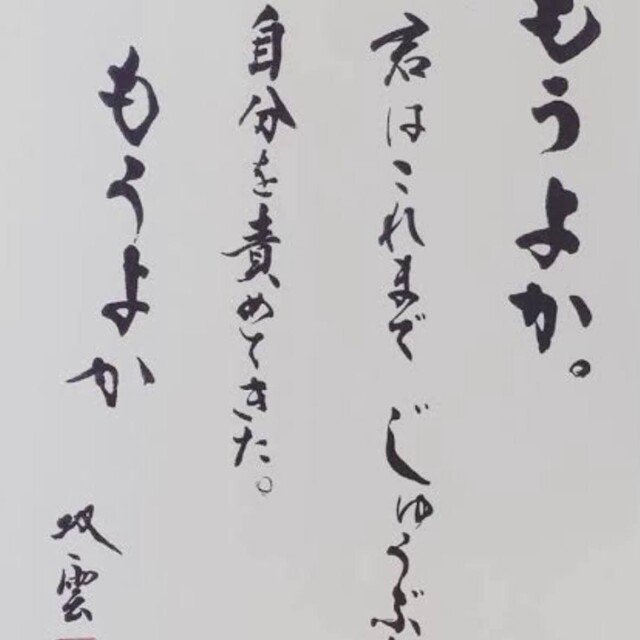 もうよか。
君はこれまで じゅうぶ
自分を責めてきた。
もうよか
双雲